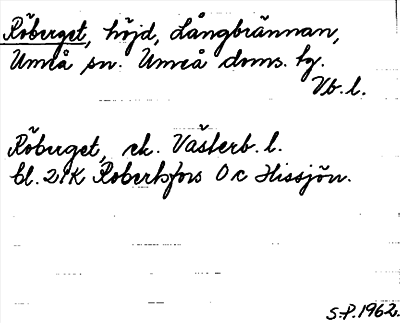 Röberget, höjd, Långbrännan,
Umeå sn. Umeå doms. hg.
Vb. l.
Röberget, ek. Västerb. l.
bl. 21K Robertsfors 0c Hissjön.
S.P. 1962.